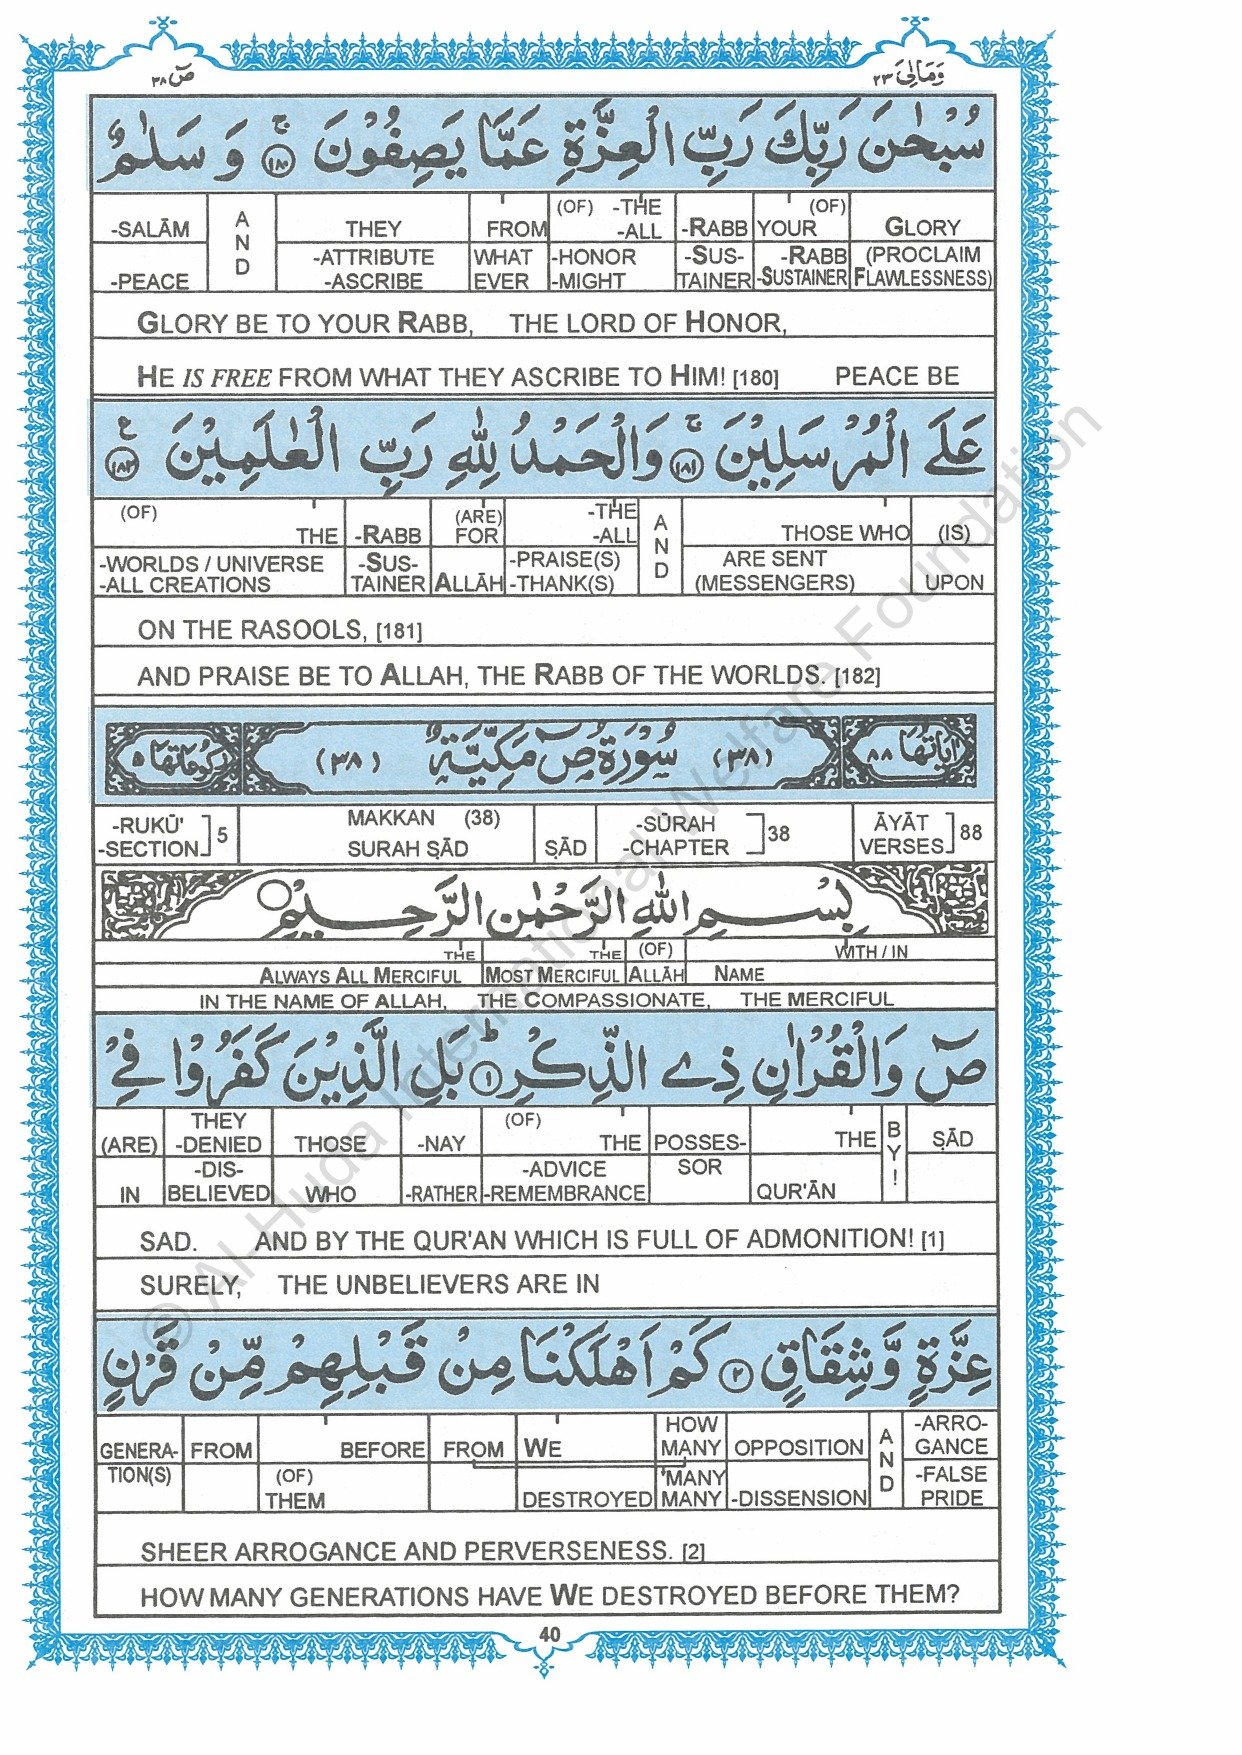 وَمَالِىَ ٢٣
صٓ ٣٨
سُبْحٰنَ رَبِّكَ رَبِّ الْعِزَّةِ عَمَّا يَصِفُوْنَ ۚ ﴿١٨٠﴾ وَ سَلٰمٌ
-SALĀM AND THEY FROM (OF) -THE -ALL -RABB YOUR (OF) GLORY
-PEACE -ATTRIBUTE -ASCRIBE WHAT EVER -HONOR -MIGHT -SUS-TAINER -RABB -SUSTAINER (PROCLAIM FLAWLESSNESS)
GLORY BE TO YOUR RABB, THE LORD OF HONOR,
HE IS FREE FROM WHAT THEY ASCRIBE TO HIM! [180] PEACE BE
عَلَى الْمُرْسَلِيْنَ ۚ ﴿١٨١﴾ وَالْحَمْدُ لِلّٰهِ رَبِّ الْعٰلَمِيْنَ ﴿١٨٢﴾ ع
(OF) THE -RABB (ARE) FOR -THE -ALL AND THOSE WHO (IS)
-WORLDS / UNIVERSE -ALL CREATIONS -SUS-TAINER ALLĀH -PRAISE(S) -THANK(S) ARE SENT (MESSENGERS) UPON
ON THE RASOOLS, [181]
AND PRAISE BE TO ALLAH, THE RABB OF THE WORLDS. [182]
اٰيَاتُهَا ٨٨ (٣٨) سُوْرَةُ صٓ مَكِّيَّةٌ (٣٨) رُكُوْعَاتُهَا ٥
-RUKŪ' -SECTION 5 MAKKAN (38) SURAH ṢĀD ṢĀD -SŪRAH -CHAPTER 38 ĀYĀT VERSES 88
بِسْمِ اللّٰهِ الرَّحْمٰنِ الرَّحِيْمِ
THE THE (OF) WITH / IN
ALWAYS ALL MERCIFUL MOST MERCIFUL ALLĀH NAME
IN THE NAME OF ALLAH, THE COMPASSIONATE, THE MERCIFUL
صٓ وَالْقُرْاٰنِ ذِى الذِّكْرِ ؕ ﴿١﴾ بَلِ الَّذِيْنَ كَفَرُوْا فِىْ
(ARE) THEY -DENIED THOSE -NAY (OF) THE POSSES- THE BY! ṢĀD
IN -DIS-BELIEVED WHO -RATHER -ADVICE -REMEMBRANCE SOR QUR'ĀN
SAD. AND BY THE QUR'AN WHICH IS FULL OF ADMONITION! [1]
SURELY, THE UNBELIEVERS ARE IN
عِزَّةٍ وَّشِقَاقٍ ﴿٢﴾ كَمْ اَهْلَكْنَا مِنْ قَبْلِهِمْ مِّنْ قَرْنٍ
GENERA- FROM BEFORE FROM WE HOW MANY OPPOSITION AND -ARRO-GANCE
TION(S) (OF) THEM DESTROYED 'MANY MANY -DISSENSION -FALSE PRIDE
SHEER ARROGANCE AND PERVERSENESS. [2]
HOW MANY GENERATIONS HAVE WE DESTROYED BEFORE THEM?
40
© Al-Huda International Welfare Foundation